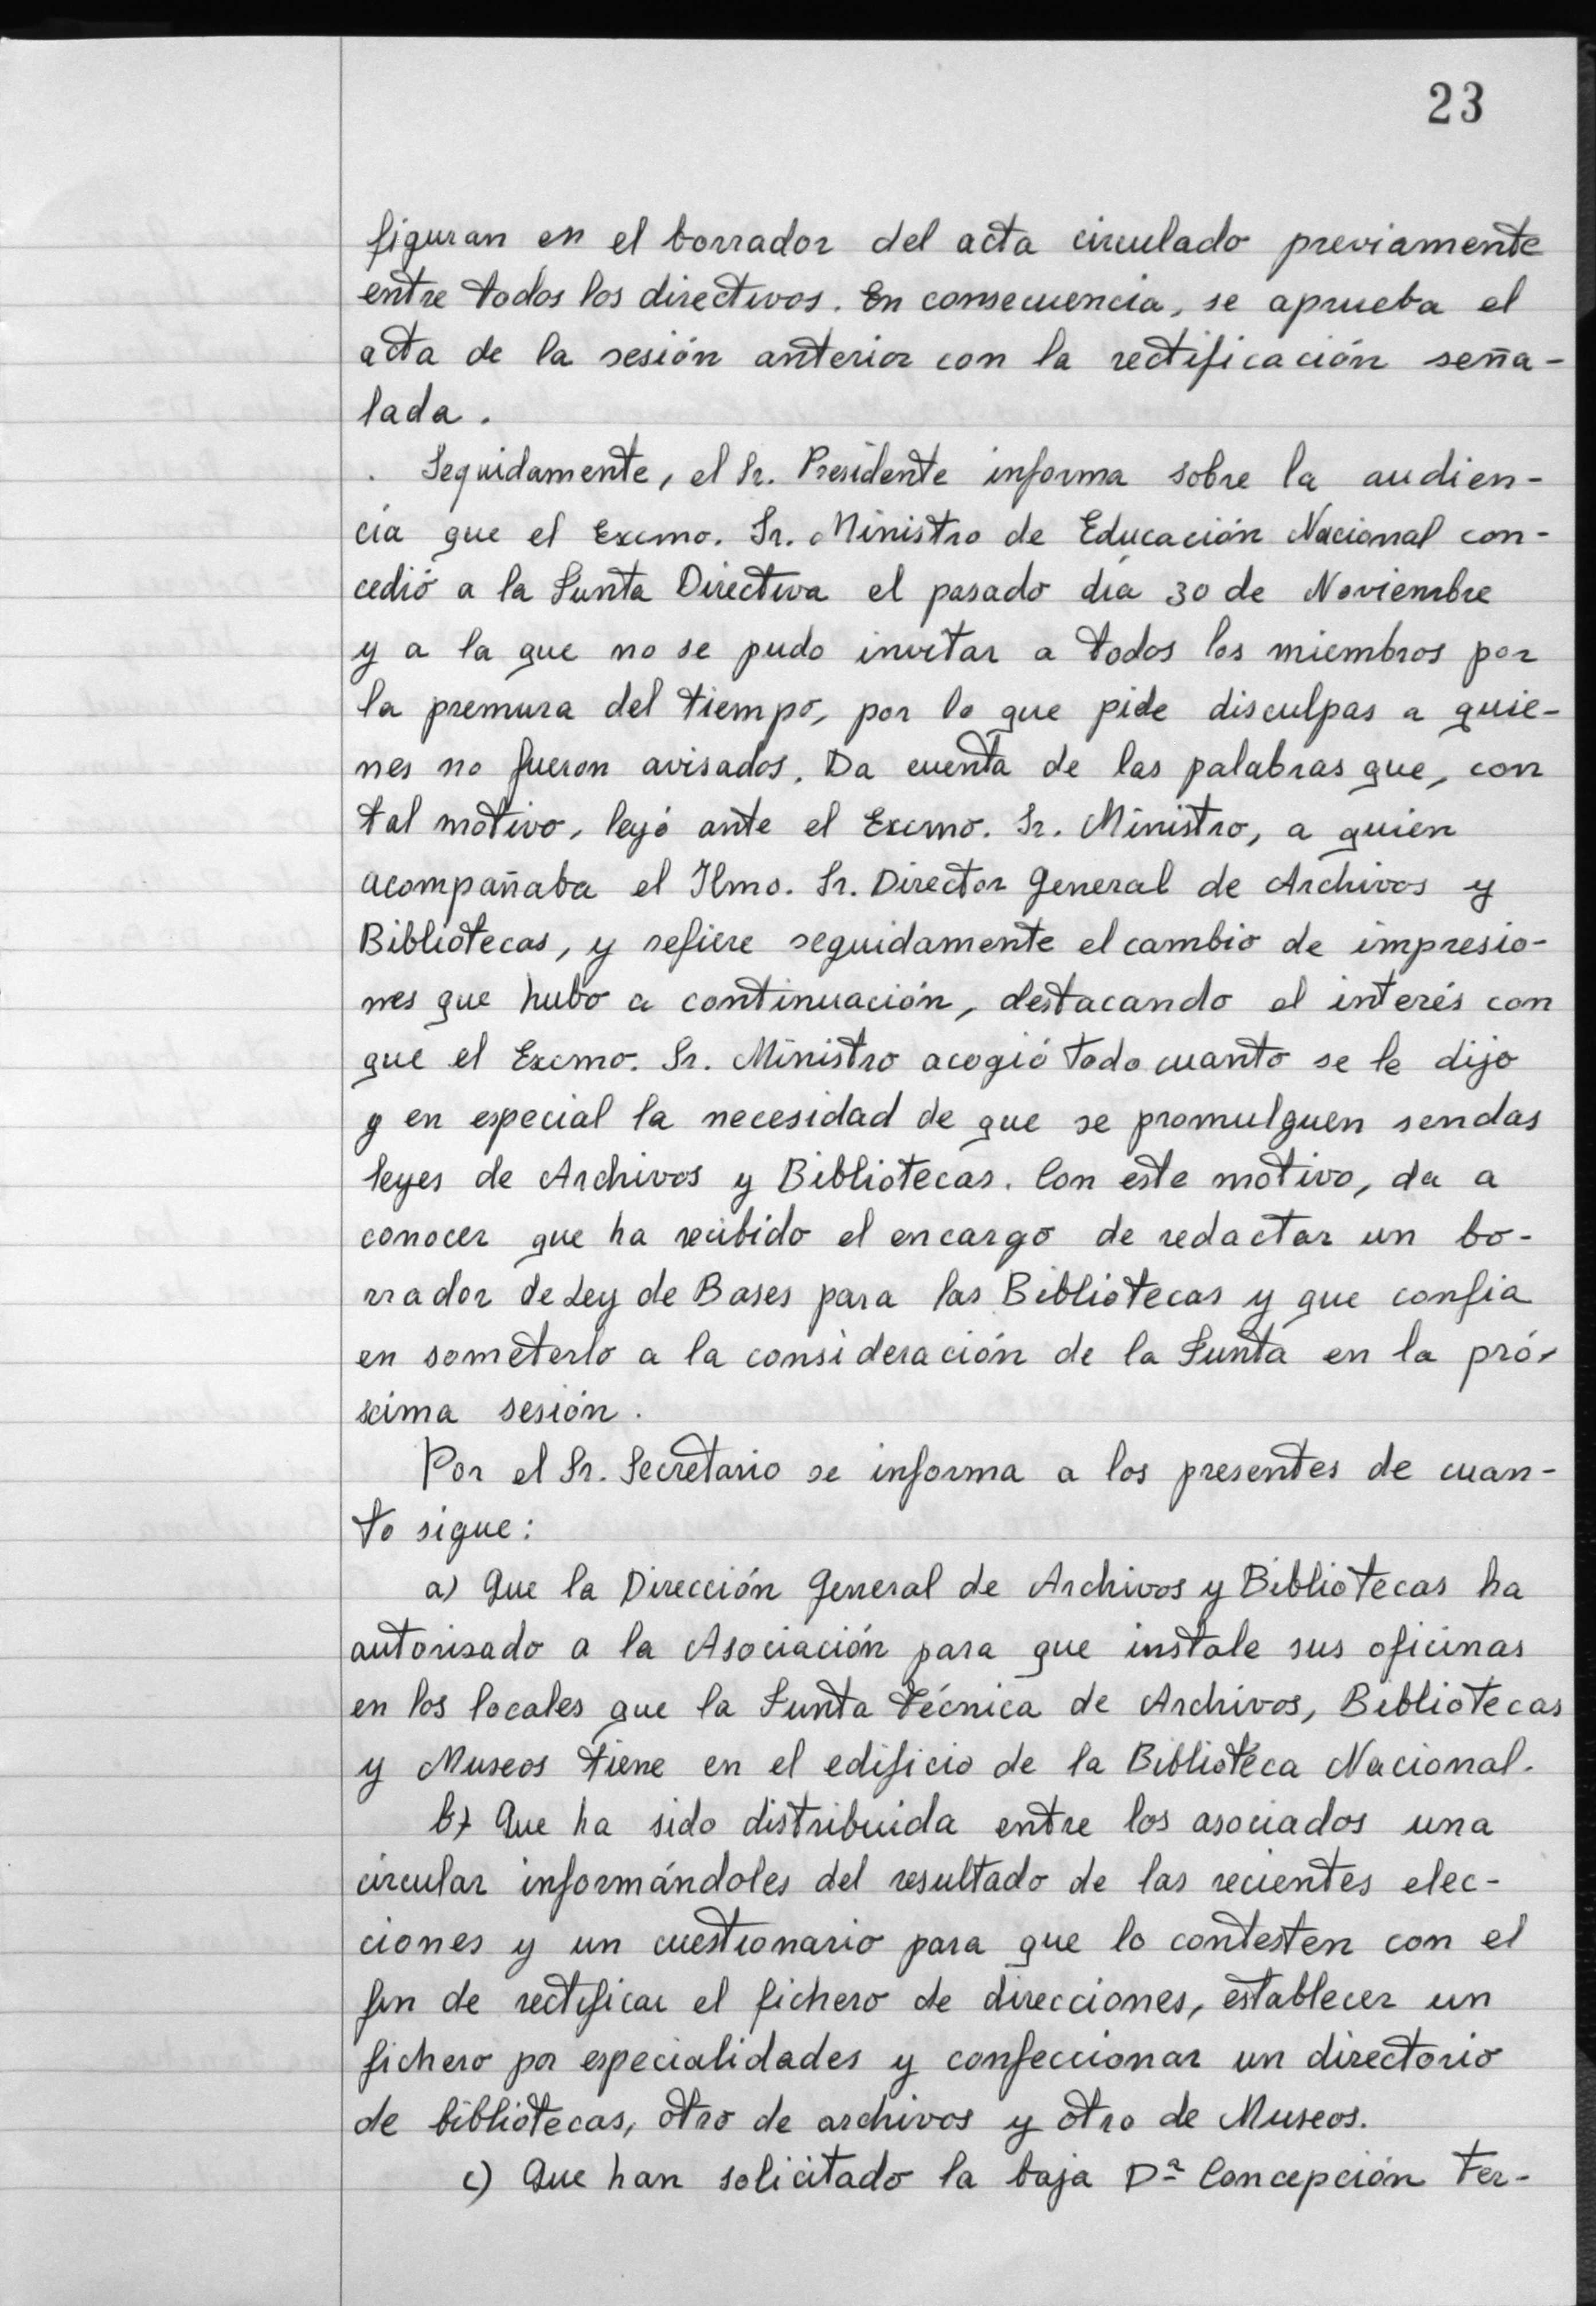 23
figuran en el borrador del acta circulado previamente
entre todos los directivos. En consecuencia, se aprueba el
acta de la sesión anterior con la rectificación seña-
lada.
Seguidamente, el Sr. Presidente informa sobre la audien-
cia que el Excmo. Sr. Ministro de Educación Nacional con-
cedió a la Junta Directiva el pasado día 30 de Noviembre
y a la que no se pudo invitar a todos los miembros por
la premura del tiempo, por lo que pide disculpas a quie-
nes no fueron avisados. Da cuenta de las palabras que, con
tal motivo, leyó ante el Excmo. Sr. Ministro, a quien
acompañaba el Ilmo. Sr. Director General de Archivos y
Bibliotecas, y refiere seguidamente el cambio de impresio-
nes que hubo a continuación, destacando el interés con
que el Excmo. Sr. Ministro acogió todo cuanto se le dijo
y en especial la necesidad de que se promulguen sendas
leyes de Archivos y Bibliotecas. Con este motivo, da a
conocer que ha recibido el encargo de redactar un bo-
rrador de Ley de Bases para las Bibliotecas y que confía
en someterlo a la consideración de la Junta en la pró-
xima sesión.
Por el Sr. Secretario se informa a los presentes de cuan-
to sigue:
a) Que la Dirección General de Archivos y Bibliotecas ha
autorizado a la Asociación para que instale sus oficinas
en los locales que la Junta Técnica de Archivos, Bibliotecas
y Museos tiene en el edificio de la Biblioteca Nacional.
b) Que ha sido distribuida entre los asociados una
circular informándoles del resultado de las recientes elec-
ciones y un cuestionario para que lo contesten con el
fin de rectificar el fichero de direcciones, establecer un
fichero por especialidades y confeccionar un directorio
de bibliotecas, otro de archivos y otro de Museos.
c) Que han solicitado la baja Dª Concepción Fer-